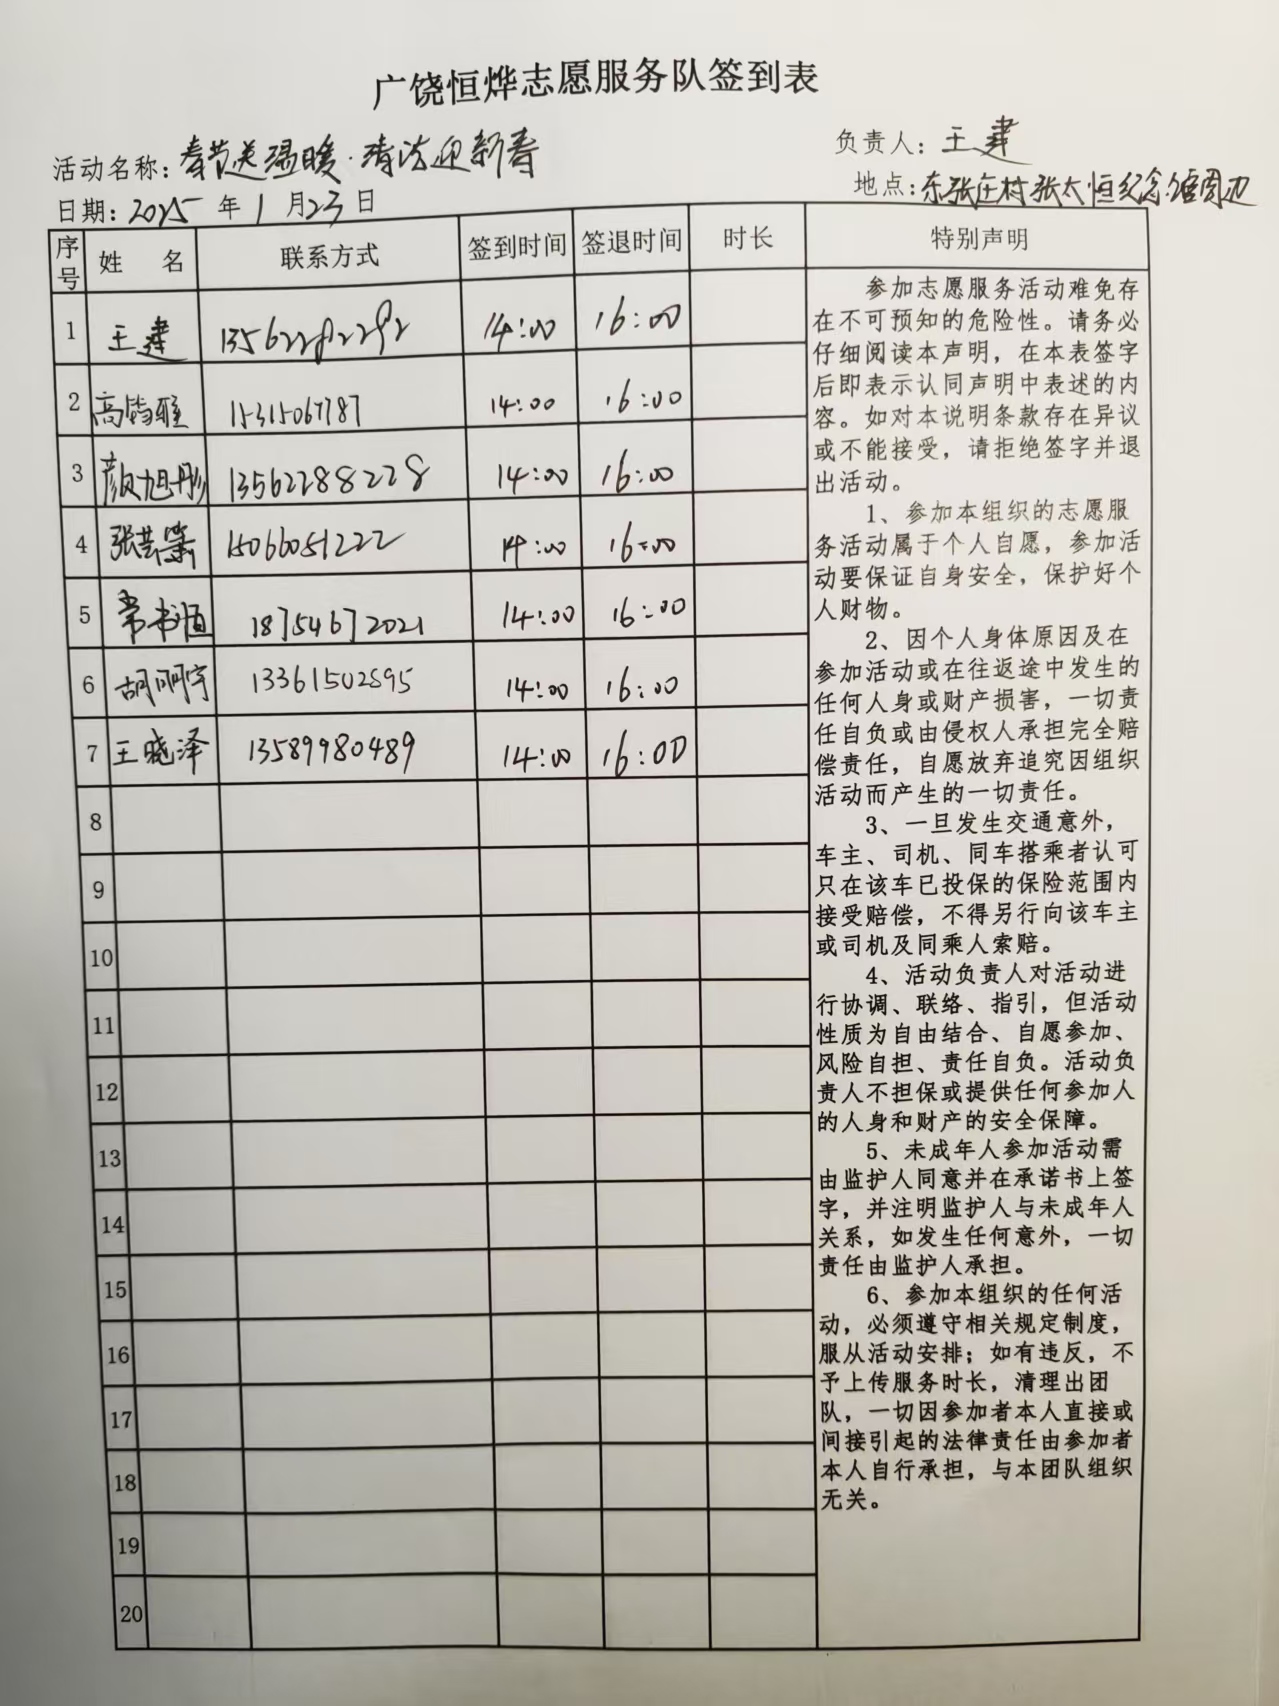 广饶恒烨志愿服务队签到表
活动名称：春节送温暖·清洁迎新春 负责人：王建
日期：2025年1月23日 地点：东张庄村张太恒纪念馆周边
序号 姓名 联系方式 签到时间 签退时间 时长 特别声明
1 王建 14:00 16:00
2 15315067787 14:00 16:00
3 颜旭彤 13562288228 14:00 16:00
4 15066051222 14:00 16:00
5 常书恒 18754672021 14:00 16:00
6 胡明宇 13361502895 14:00 16:00
7 王晓泽 13589980489 14:00 16:00
8
9
10
11
12
13
14
15
16
17
18
19
20
参加志愿服务活动难免存
在不可预知的危险性。请务必
仔细阅读本声明，在本表签字
后即表示认同声明中表述的内
容。如对本说明条款存在异议
或不能接受，请拒绝签字并退
出活动。
1、参加本组织的志愿服
务活动属于个人自愿，参加活
动要保证自身安全，保护好个
人财物。
2、因个人身体原因及在
参加活动或在往返途中发生的
任何人身或财产损害，一切责
任自负或由侵权人承担完全赔
偿责任，自愿放弃追究因组织
活动而产生的一切责任。
3、一旦发生交通意外，
车主、司机、同车搭乘者认可
只在该车已投保的保险范围内
接受赔偿，不得另行向该车主
或司机及同乘人索赔。
4、活动负责人对活动进
行协调、联络、指引，但活动
性质为自由结合、自愿参加、
风险自担、责任自负。活动负
责人不担保或提供任何参加人
的人身和财产的安全保障。
5、未成年人参加活动需
由监护人同意并在承诺书上签
字，并注明监护人与未成年人
关系，如发生任何意外，一切
责任由监护人承担。
6、参加本组织的任何活
动，必须遵守相关规定制度，
服从活动安排；如有违反，不
予上传服务时长，清理出团
队，一切因参加者本人直接或
间接引起的法律责任由参加者
本人自行承担，与本团队组织
无关。